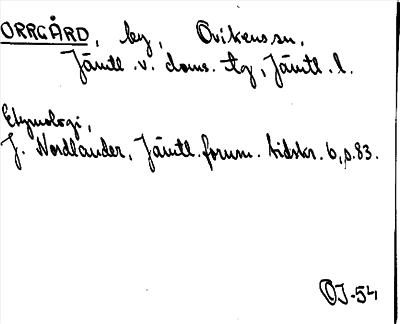 ORRGÅRD, by, Ovikens sn,
Jämtl. v. doms. tg, Jämtl. l.
Etymologi,
J. Nordlander, Jämtl. fornm. tidskr. 6, s. 83.
OJ-54